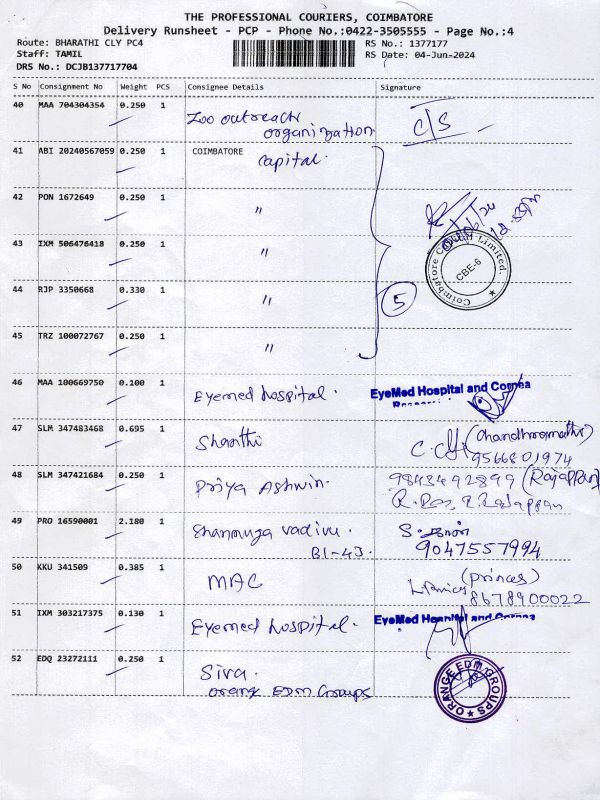 THE PROFESSIONAL COURIERS, COIMBATORE
Delivery Runsheet - PCP - Phone No.:0422-3505555 - Page No.:4
Route: BHARATHI CLY PC4 RS No.: 1377177
Staff: TAMIL RS Date: 04-Jun-2024
DRS No.: DCJB137717704
S No Consignment No Weight PCS Consignee Details Signature
40 MAA 704304354 0.250 1 Zoo outreach
organization C/S
41 ABI 20240567059 0.250 1 COIMBATORE
Capital.
42 PON 1672649 0.250 1 "
43 IXM 506476418 0.250 1 "
Coimbatore Capital Limited.
CBE-6
44 RJP 3350668 0.330 1 " 5
45 TRZ 100072767 0.250 1 "
46 MAA 100669750 0.100 1 Eyemed hospital. EyeMed Hospital and Cornea
47 SLM 347483468 0.695 1 Shanthi (Chandhramathi)
9566801974
48 SLM 347421684 0.250 1 Priya Ashwin. 9843492899 (Rajappan)
49 PRO 16590001 2.180 1 Shanmuga vadivu.
B1-43. 9047557994
50 KKU 341509 0.385 1 MAC (princes)
8678900022
51 IXM 303217375 0.130 1 Eyemed hospital. EyeMed Hospital and Cornea
52 EDQ 23272111 0.250 1 Siva.
orange EDM Groups ORANGE EDM GROUPS